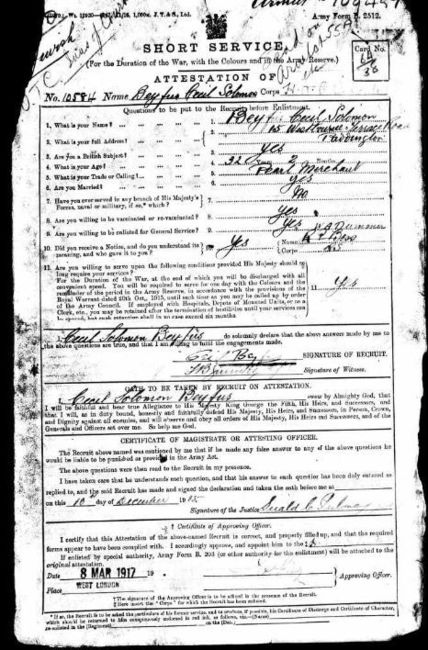 Army Form B. 2512.
SHORT SERVICE.
(For the Duration of the War, with the Colours and in the Army Reserve.)
Card No.
ATTESTATION OF
No. 10584 Name Beyfus Cecil Solomon Corps
Questions to be put to the Recruit before Enlistment.
1. What is your Name? 1. Beyfus Cecil Solomon
2. What is your full Address? 2. 15 Westbourne Terrace Road
Paddington
3. Are you a British Subject? 3. Yes
4. What is your Age? 4. 32 Months
5. What is your Trade or Calling? 5. Pearl Merchant
6. Are you Married? 6. Yes
7. Have you ever served in any branch of His Majesty's Forces, naval or military, if so, which? 7. No
8. Are you willing to be vaccinated or re-vaccinated? 8. Yes
9. Are you willing to be enlisted for General Service? 9. Yes
10. Did you receive a Notice, and do you understand its meaning, and who gave it to you? 10. Yes Name Corps
11. Are you willing to serve upon the following conditions provided His Majesty should so long require your services?
For the Duration of the War, at the end of which you will be discharged with all convenient speed. You will be required to serve for one day with the Colours and the remainder of the period in the Army Reserve, in accordance with the provisions of the Royal Warrant dated 20th Oct., 1915, until such time as you may be called up by order of the Army Council. If employed with Hospitals, Depots of Mounted Units, or as a Clerk, etc., you may be retained after the termination of hostilities until your services can be spared, but such retention shall in no case exceed six months.
11. Yes
I, Cecil Solomon Beyfus do solemnly declare that the above answers made by me to the above questions are true, and that I am willing to fulfil the engagements made.
SIGNATURE OF RECRUIT.
Signature of Witness.
OATH TO BE TAKEN BY RECRUIT ON ATTESTATION.
I, Cecil Solomon Beyfus swear by Almighty God, that
I will be faithful and bear true Allegiance to His Majesty King George the Fifth, His Heirs, and Successors, and
that I will, as in duty bound, honestly and faithfully defend His Majesty, His Heirs, and Successors, in Person, Crown,
and Dignity against all enemies, and will observe and obey all orders of His Majesty, His Heirs and Successors, and of the
Generals and Officers set over me. So help me God.
CERTIFICATE OF MAGISTRATE OR ATTESTING OFFICER.
The Recruit above named was cautioned by me that if he made any false answer to any of the above questions he
would be liable to be punished as provided in the Army Act.
The above questions were then read to the Recruit in my presence.
I have taken care that he understands each question, and that his answer to each question has been duly entered as
replied to, and the said Recruit has made and signed the declaration and taken the oath before me at
on this 10 day of December 1915
Signature of the Justice
† Certificate of Approving Officer.
I certify that this Attestation of the above-named Recruit is correct, and properly filled up, and that the required
forms appear to have been complied with. I accordingly approve, and appoint him to the ‡
If enlisted by special authority, Army Form B. 203 (or other authority for the enlistment) will be attached to the
original attestation.
Date 8 MAR 1917 19
Place WEST LONDON
Approving Officer.
† The signature of the Approving Officer is to be affixed in the presence of the Recruit.
‡ Here insert the "Corps" for which the Recruit has been enlisted.